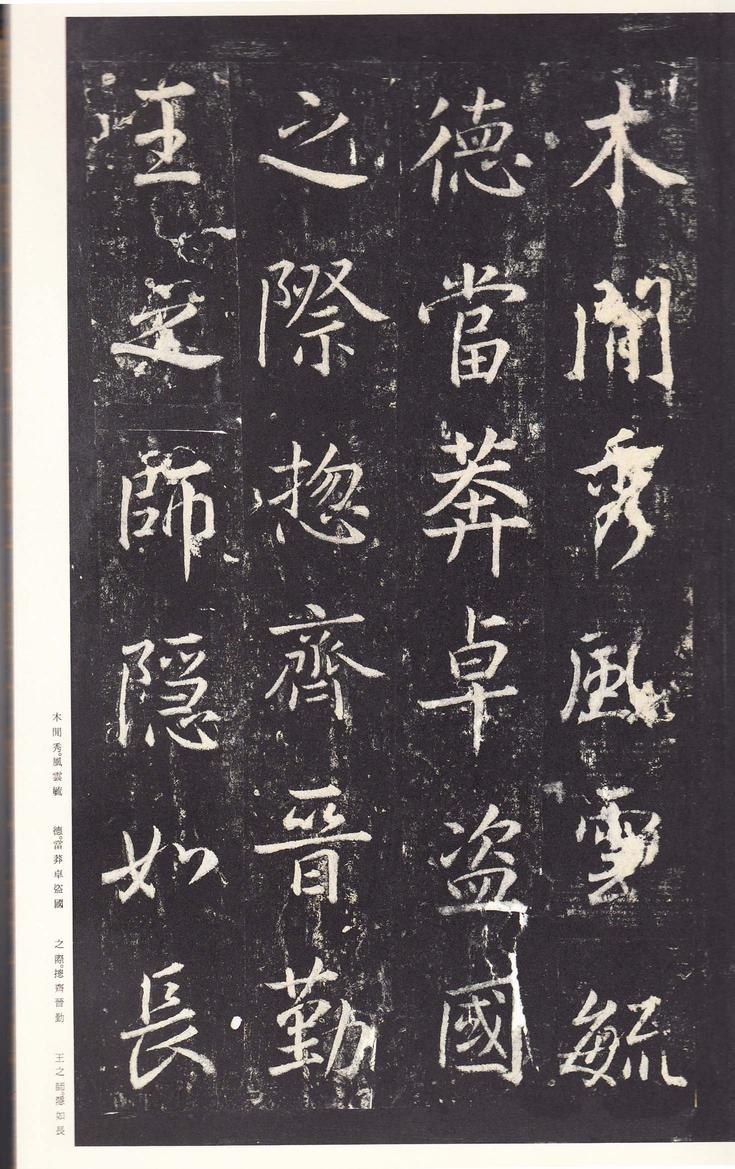 木閒秀風雲毓
德當莽卓盜國
之際揔齊晉勤
王之師隱如長
木閒秀。風雲毓　德。當莽卓盜國　之際。揔齊晉勤　王之師。隱如長